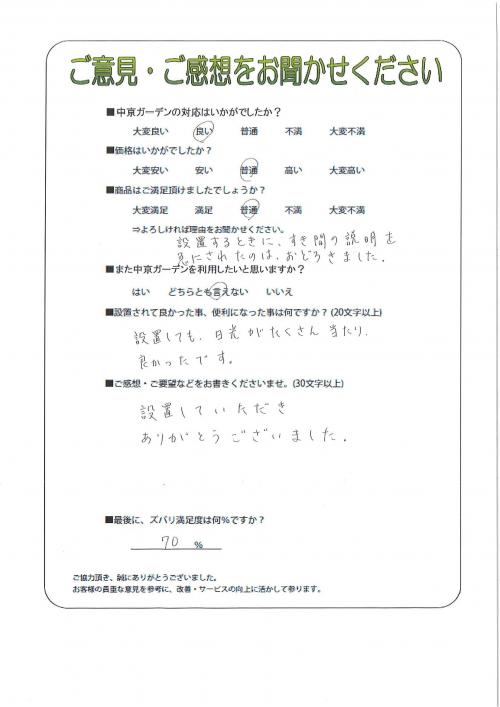 ご意見・ご感想をお聞かせください
■中京ガーデンの対応はいかがでしたか?
大変良い 良い 普通 不満 大変不満
■価格はいかがでしたか?
大変安い 安い 普通 高い 大変高い
■商品はご満足頂けましたでしょうか?
大変満足 満足 普通 不満 大変不満
⇒よろしければ理由をお聞かせください。
設置するときに、すき間の説明を
急にされたのは、おどろきました.
■また中京ガーデンを利用したいと思いますか?
はい どちらとも言えない いいえ
■設置されて良かった事、便利になった事は何ですか?(20文字以上)
設置しても、日光がたくさん当たり、
良かったです。
■ご感想・ご要望などをお書きくださいませ。(30文字以上)
設置していただき
ありがとうございました.
■最後に、ズバリ満足度は何%ですか?
70 %
ご協力頂き、誠にありがとうございました。
お客様の貴重な意見を参考に、改善・サービスの向上に活かして参ります。